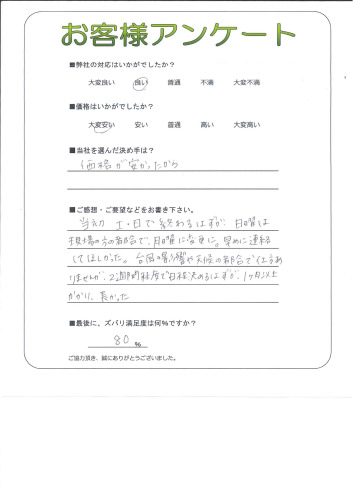 お客様アンケート
■弊社の対応はいかがでしたか？
大変良い 良い 普通 不満 大変不満
■価格はいかがでしたか？
大変安い 安い 普通 高い 大変高い
■当社を選んだ決め手は？
価格が安かったから
■ご感想・ご要望などをお書き下さい。
当初 土・日で終わるはずが、日曜は
現場の方の都合で、月曜に変更に。早めに連絡
してほしかった。台風の影響や天候の都合で仕方あ
りませんが、2週間程度で日程決めるはずが、1ヶ月以上
かかり、長かった
■最後に、ズバリ満足度は何％ですか？
80 %
ご協力頂き、誠にありがとうございました。